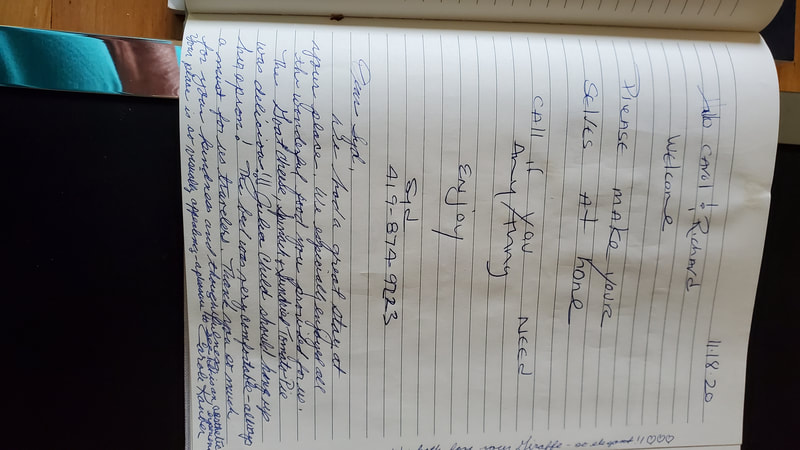 11.18.20
Hello Carol & Richard
Welcome
Please make your
selves At home
CALL if you NEED
Any thing
Enjoy
Syd
419-874-9223
Dear Syd,
We had a great stay at
your place. We especially enjoyed all
the wonderful food you provided for us.
The Goat cheese, spinach & sundried Tomato Pie
was delicious!! Julia Child should hang up
her apron! The bed was very comfortable - always
a must for us travelers. Thank you so much
for your kindness and thoughtfulness.
Your place is so visually appealing
Carole
love your Giraffe - so elegant!! ♡♡♡